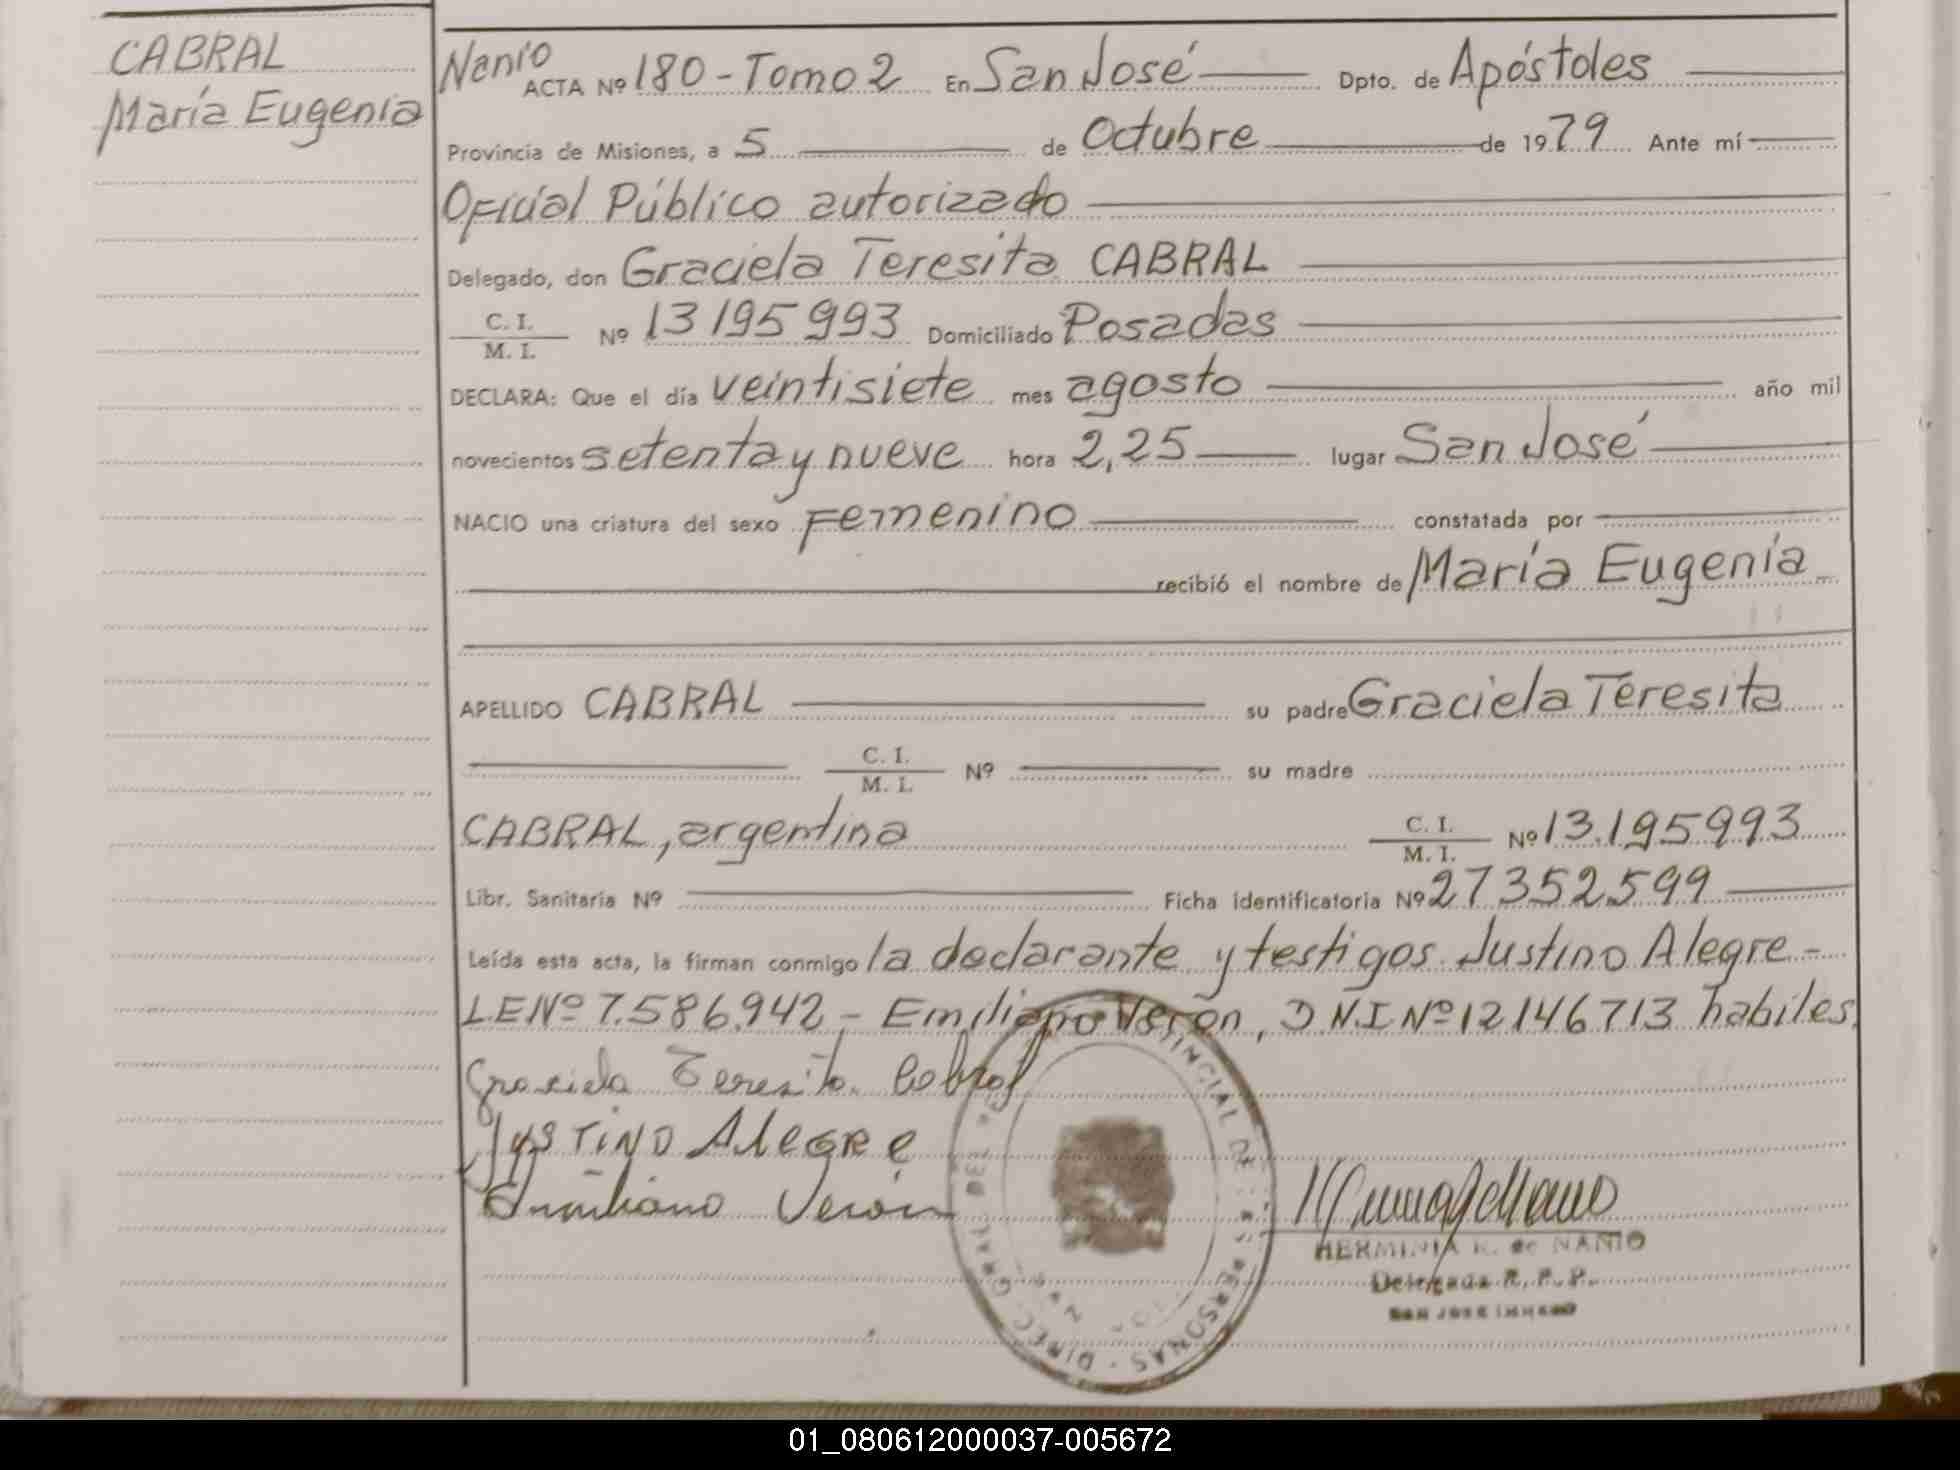 CABRAL
María Eugenia
Nanío
ACTA Nº 180 - Tomo 2 En San José Dpto. de Apóstoles
Provincia de Misiones, a 5 de Octubre de 1979 Ante mí
Oficial Público autorizado
Delegado, don Graciela Teresita CABRAL
C. I.
M. I.
Nº 13195993 Domiciliado Posadas
DECLARA: Que el día veintisiete mes agosto año mil
novecientos setenta y nueve hora 2,25 lugar San José
NACIO una criatura del sexo Femenino constatada por
recibió el nombre de María Eugenia
APELLIDO CABRAL su padre Graciela Teresita
C. I.
M. I.
Nº su madre
CABRAL, argentina
C. I.
M. I.
Nº 13.195993
Libr. Sanitaria Nº Ficha identificatoria Nº 27352599
Leída esta acta, la firman conmigo la declarante y testigos Justino Alegre -
LE Nº 7.586.942 - Emiliano Veron, DNI Nº 12146713 habiles.
Graciela Teresita Cabral
JUSTINO ALEGRE
Emiliano Verón
HERMINIA K. de NANIO
Delegada R. P. P.
SAN JOSE
DIREC. GRAL. DEL PERSONAS
01_080612000037-005672